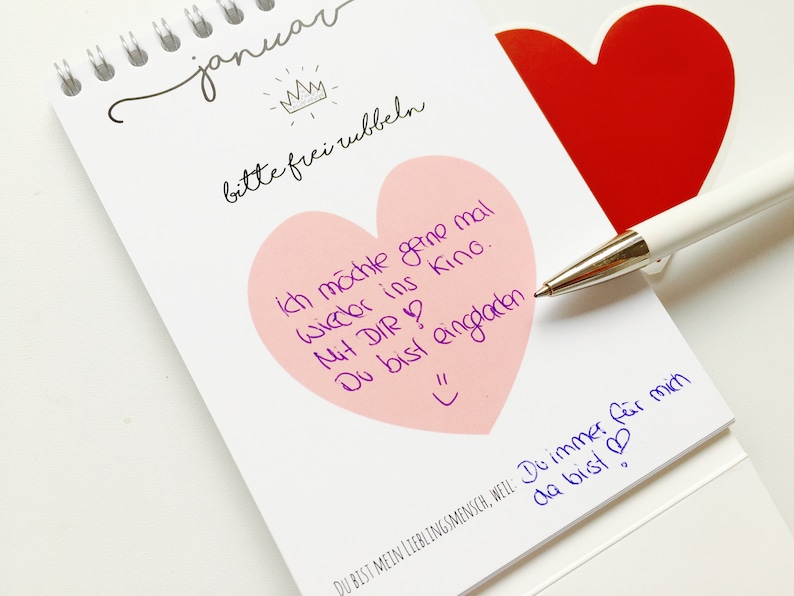 januar
bitte frei rubbeln
ich möchte gerne mal
wieder ins Kino.
Mit DIR!
Du bist eingeladen
Du bist mein Lieblingsmensch, weil: Du immer für mich
da bist!